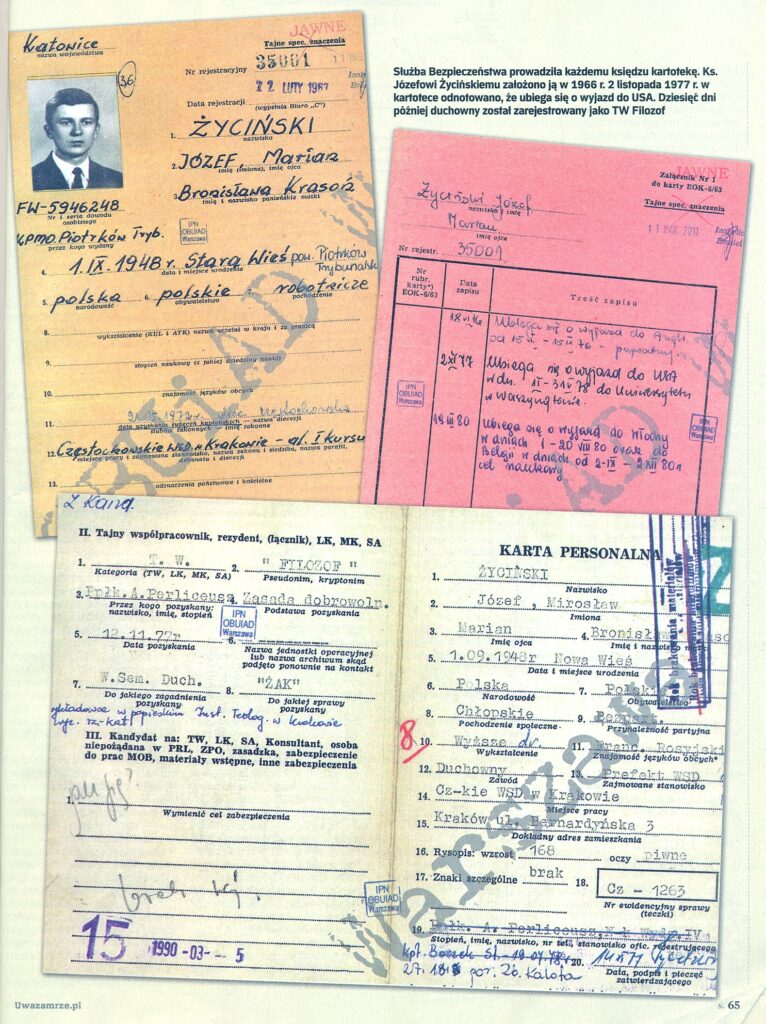 Służba Bezpieczeństwa prowadziła każdemu księdzu kartotekę. Ks.
Józefowi Życińskiemu założono ją w 1966 r. 2 listopada 1977 r. w
kartotece odnotowano, że ubiega się o wyjazd do USA. Dziesięć dni
później duchowny został zarejestrowany jako TW Filozof
Katowice
nazwa województwa
JAWNE
Tajne spec. znaczenia
36
Nr rejestracyjny 35001
22 LUTY 1967
Data rejestracji
(wypełnia Biuro „C")
1. ŻYCIŃSKI
2. JÓZEF Marian
imię (imiona), imię ojca
3. Bronisława Krasoń
imię i nazwisko panieńskie matki
FW-5946248
Nr i seria dowodu
osobistego
KPMO. Piotrków Tryb.
przez kogo wydany
IPN
OBUIAD
Warszawa
4. 1. IX. 1948 r. Stara Wieś pow. Piotrków
Trybunalski
data i miejsce urodzenia
5. polska 6. polskie 7. robotnicze
narodowość obywatelstwo pochodzenie
8.
wykształcenie (KUL i ATK) nazwa uczelni w kraju i za granicą
9.
stopień naukowy (z jakiej dziedziny nauki)
10.
znajomość języków obcych
11. 1972 r. częstochowska
data uzyskania święceń kapłańskich — nazwa diecezji
ślubów zakonnych — imię zakonne
12. Częstochowskie WSD w Krakowie - al. I kursu
miejsce pracy i zajmowane stanowisko, nazwa zakonu i siedziba, nazwa parafii,
dekanatu i diecezji
13.
odznaczenia państwowe i kościelne
JAWNE
Załącznik Nr 1
do karty EOK-6/63
Tajne spec. znaczenia
Życiński Józef
nazwisko i imię
Marian
imię ojca
11 MAR. 2011
Nr rejestr. 35001
Nr
rubr.
karty*)
EOK-6/63
Data
zapisu
Treść zapisu
Ubiega się o wyjazd do Angli
2 XI 77 Ubiega się o wyjazd do USA
w dn. do Uniwersytetu
w Waszyngtonie.
IPN
OBUIAD
Warszawa
IPN
OBUIAD
Warszawa
80 Ubiega się o wyjazd do Włoch
w dniach 1-20 VIII 80 oraz do
Belgii w dniach od 2-IX - 2 XII 80 r
cel naukowy
z Kand.
II. Tajny współpracownik, rezydent, (łącznik), LK, MK, SA
1. T. W. 2. " FILOZOF "
Kategoria (TW, LK, MK, SA) Pseudonim, kryptonim
3. Ppłk. A. Perliceusz 4. Zasada dobrowoln.
Przez kogo pozyskany: Podstawa pozyskania
nazwisko, imię, stopień
IPN
OBUIAD
Warszawa
5. 12.11.77r 6.
Data pozyskania Nazwa jednostki operacyjnej
lub nazwa archiwum skąd
podjęto ponownie na kontakt
7. W.Sem. Duch. 8. "ŻAK"
Do jakiego zagadnienia Do jakiej sprawy
pozyskany pozyskany
wykładowca w papieskim Inst. Teolog. w Krakowie
wyz. rz-kat
III. Kandydat na: TW, LK, SA, Konsultant, osoba
niepożądana w PRL, ZPO, zasadzka, zabezpieczenie
do prac MOB, materiały wstępne, inne zabezpieczenia
1.
Wymienić cel zabezpieczenia
15 1990 -03- - 5
IPN
OBUIAD
Warszawa
KARTA PERSONALNA
1. ŻYCIŃSKI
Nazwisko
2. Józef , Mirosław
Imiona
3. Marian 4. Bronisława
Imię ojca Imię i nazwisko
5. 1.09.1948r Nowa Wieś
Data i miejsce urodzenia
6. Polska 7. Polskie
Narodowość Obywatelstwo
8. Chłopskie 9. Bezpart.
Pochodzenie społeczne Przynależność partyjna
8
10. Wyższe dr. 11. Franc. Rosyjski
Wykształcenie Znajomość języków obcych*
12. Duchowny 13. Prefekt WSD
Zawód Zajmowane stanowisko
14. Cz-kie WSD w Krakowie
Miejsce pracy
15. Kraków ul. Bernardyńska 3
Dokładny adres zamieszkania
16. Rysopis: wzrost 168 oczy piwne
17. Znaki szczególne brak 18. Cz - 1263
Nr ewidencyjny sprawy
(teczki)
19. Ppłk. A. Perliceusz, N-k Wydz. IV
Stopień, imię, nazwisko, nr tel., stanowisko ofic. rejestrującego
20.
por. Zb. Kalota
Data, podpis i pieczęć
zatwierdzającego
Warszawa
Uwazamrze.pl
s. 65